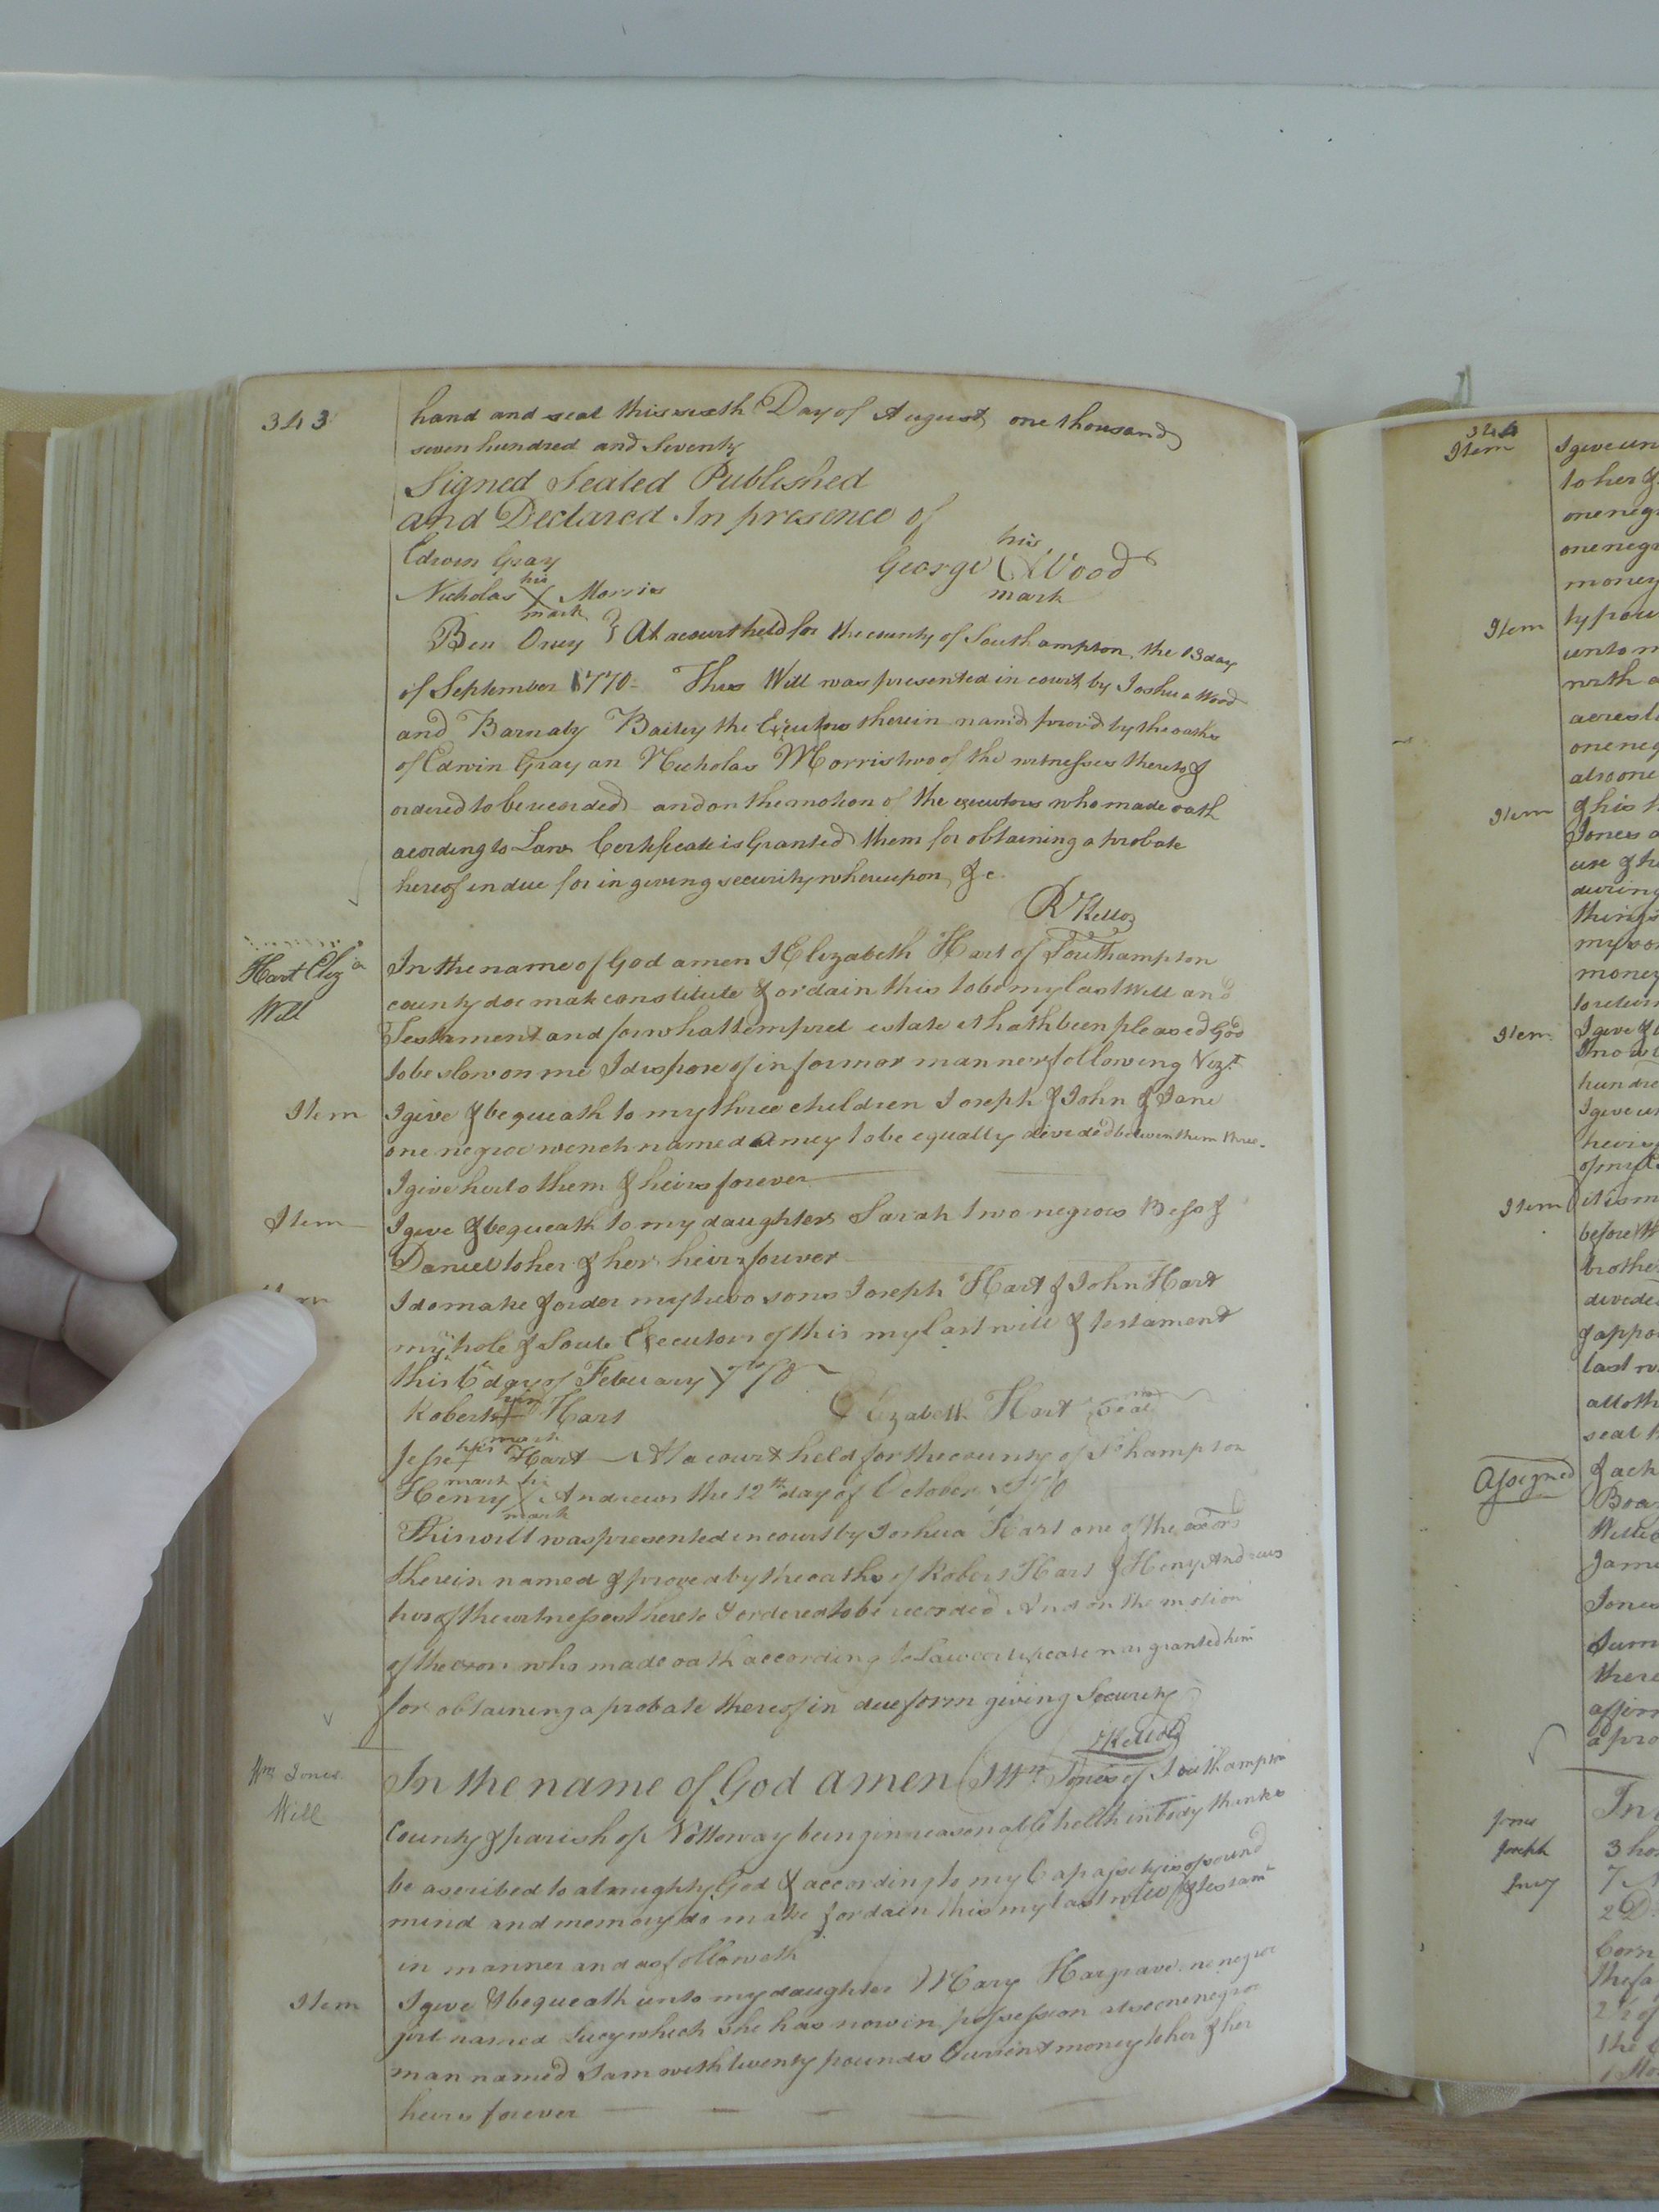 343
hand and seal this sixth Day of August one thousand
seven hundred and Seventy
Signed Sealed Published
and Declared In presence of
Edwin Gray
his
George Wood
mark
his
Nicholas X Morris
mark
Ben At a court held for the county of Southampton the 13 day
of September 1770 - This Will was presented in court by Joshua Wood
and Barnaby Bailey the Executors therein namd provd by the oaths
of Edwin Gray an Nicholas Morris two of the witnesses thereto &
ordered to be recorded and on the motion of the executors who made oath
acording to Law Certificate is Granted them for obtaining a probate
hereof in due for in giving security whereupon &c.
R Kello
Hart Eliza
Will
In the name of God amen I Elizabeth Hart of Southampton
county doe mak constitute & ordain this to be my last Will and
Testament and for what temprel estate it hath been pleased God
to be slow on me I dispose of in for mor manner following Vizt
Item
I give & bequeath to my three children Joseph & John & Jane
one negroe wench named Amey to be equally divided between them three.
I give her to them & heirs forever
Item
I give & bequeath to my daughter Sarah two negroes Bess &
Daniel to her & her heirs forever
I do make & order my two sons Joseph Hart & John Hart
my hole & Soule Executors of this my last will & testament
this 6th day of Febuary 1770
Robert Hart
mark
Elizabeth Hart Seal
Jesse his Hart At a court held for the county of So hampton
mark
Henry X Andrews the 12th day of October 1770
mark
This will was presented in court by Joshua Hart one of the exors
therein named & proved by the oaths of Robert Hart & Heny Andrews
two of the witnesses thereto & ordered to be recorded And on the motion
of the exor who made oath according to Law certificate was granted him
for obtaining a probate thereof in due form giving Security
R Kello
Wm Jones
Will
In the name of God amen I Wm Jones of Southampton
County & parish of Nottoway being in reasonable helth in body thanks
be ascribed to almughty God & according to my Capassety is of sound
mind and memory do make & ordain this my last will & testamt
in manner and as followeth
Item
I give & bequeath unto my daughter Mary Hargrave one negroe
girl named Lucy which she has now in possession also one negroe
man named Sam with twenty pounds Current money to her & her
heirs forever
344
Item
I give un
to her &
one neg
one negr
money
Item
ty pou
unto m
with a
acres l
one neg
also one
Item
& his h
Jones a
use of h
during
things
my so
money
to return
Item
I give &
hundre
I give un
heirs
of my
Item
it is m
before th
brothe
devide
& appo
last w
all oth
seal t
Assigned
& ack
Boa
Willi
Jame
Jones
Sum
there
affirm
a pro
Jones
Joseph
Invy
In
3 ho
7
2 D
Corn
the sa
2 1/2 of
the